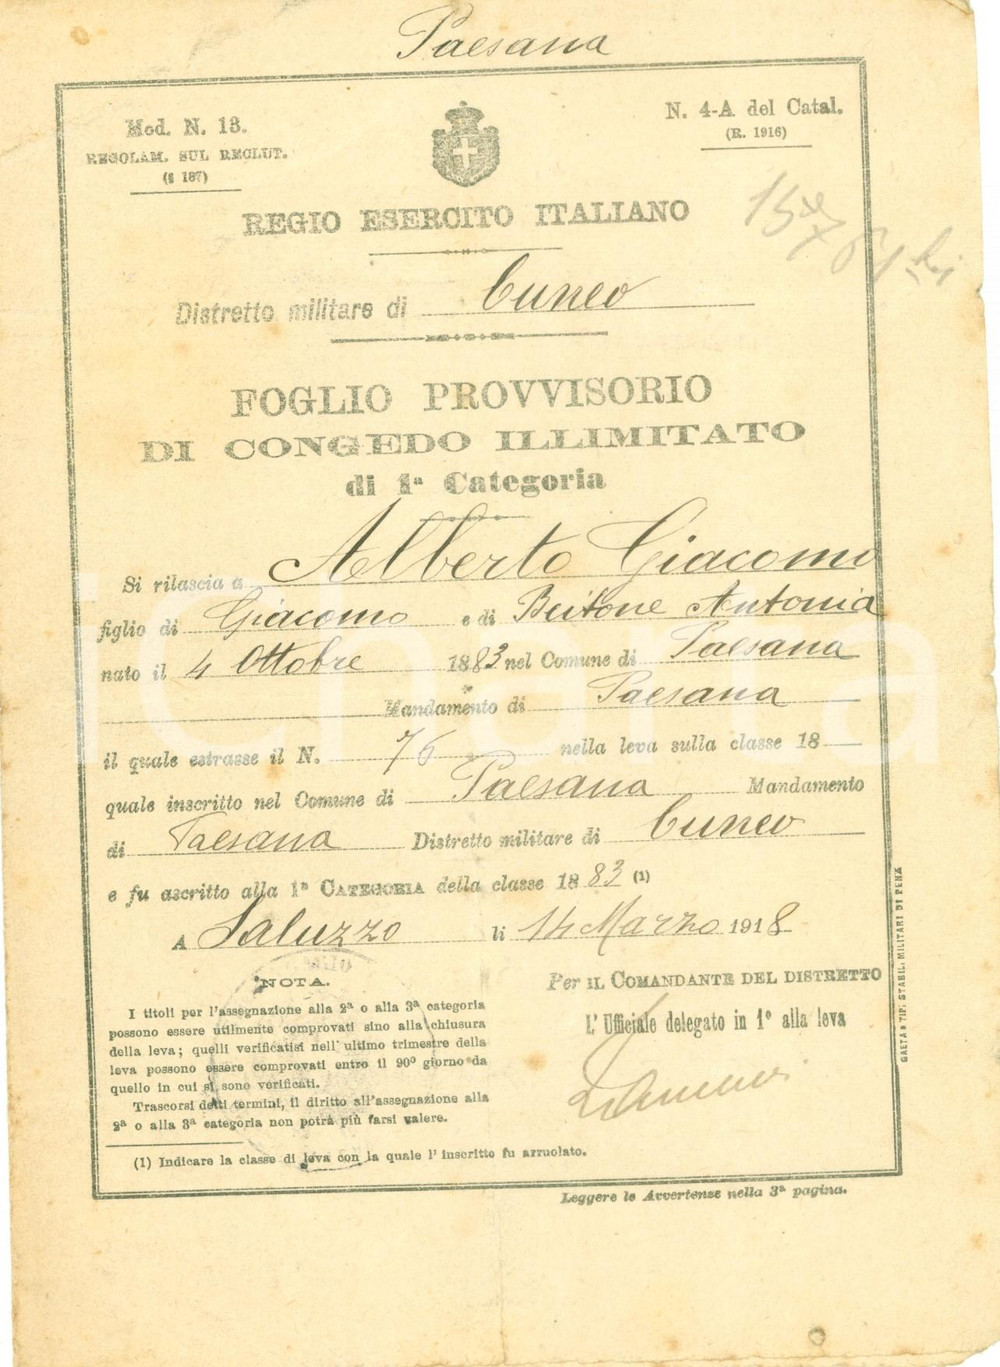 Paesana
Mod. N. 13.
REGOLAM. SUL RECLUT.
(§ 187)
N. 4-A del Catal.
(R. 1916)
REGIO ESERCITO ITALIANO
Distretto militare di Cuneo
FOGLIO PROVVISORIO
DI CONGEDO ILLIMITATO
di 1ª Categoria
Si rilascia a Alberto Giacomo
figlio di Giacomo e di Beitone Antonia
nato il 4 Ottobre 1883 nel Comune di Paesana
Mandamento di Paesana
il quale estrasse il N. 76 nella leva sulla classe 18
quale inscritto nel Comune di Paesana Mandamento
di Paesana Distretto militare di Cuneo
e fu ascritto alla 1ª CATEGORIA della classe 1883 (1)
A Saluzzo li 14 Marzo 1918
NOTA.
I titoli per l'assegnazione alla 2ª o alla 3ª categoria
possono essere utilmente comprovati sino alla chiusura
della leva; quelli verificatisi nell'ultimo trimestre della
leva possono essere comprovati entro il 90º giorno da
quello in cui si sono verificati.
Trascorsi detti termini, il diritto all'assegnazione alla
2ª o alla 3ª categoria non potrà più farsi valere.
Per IL COMANDANTE DEL DISTRETTO
L'Ufficiale delegato in 1º alla leva
(1) Indicare la classe di leva con la quale l'inscritto fu arruolato.
Leggere le Avvertenze nella 3ª pagina.
GAETA TIP. STABIL. MILITARI DI PENA